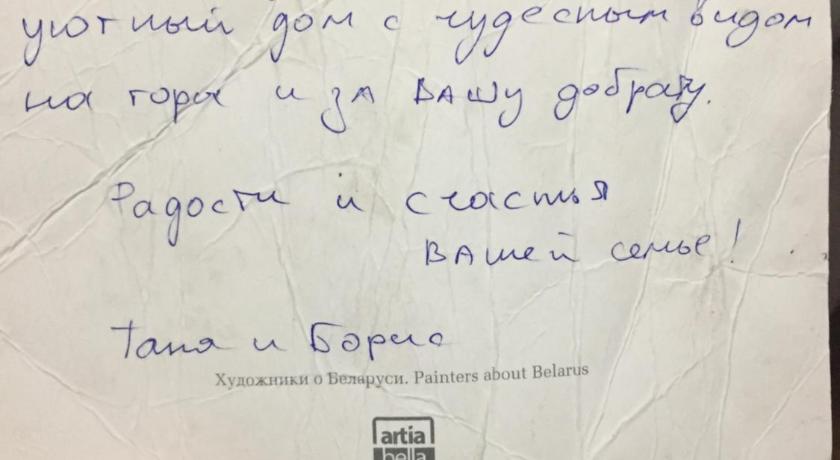 уютный дом с чудесным видом
на горы и за ВАШУ доброту.
Радости и счастья
ВАшей семье!
Таня и Борис
Художники о Беларуси. Painters about Belarus
artia
bella